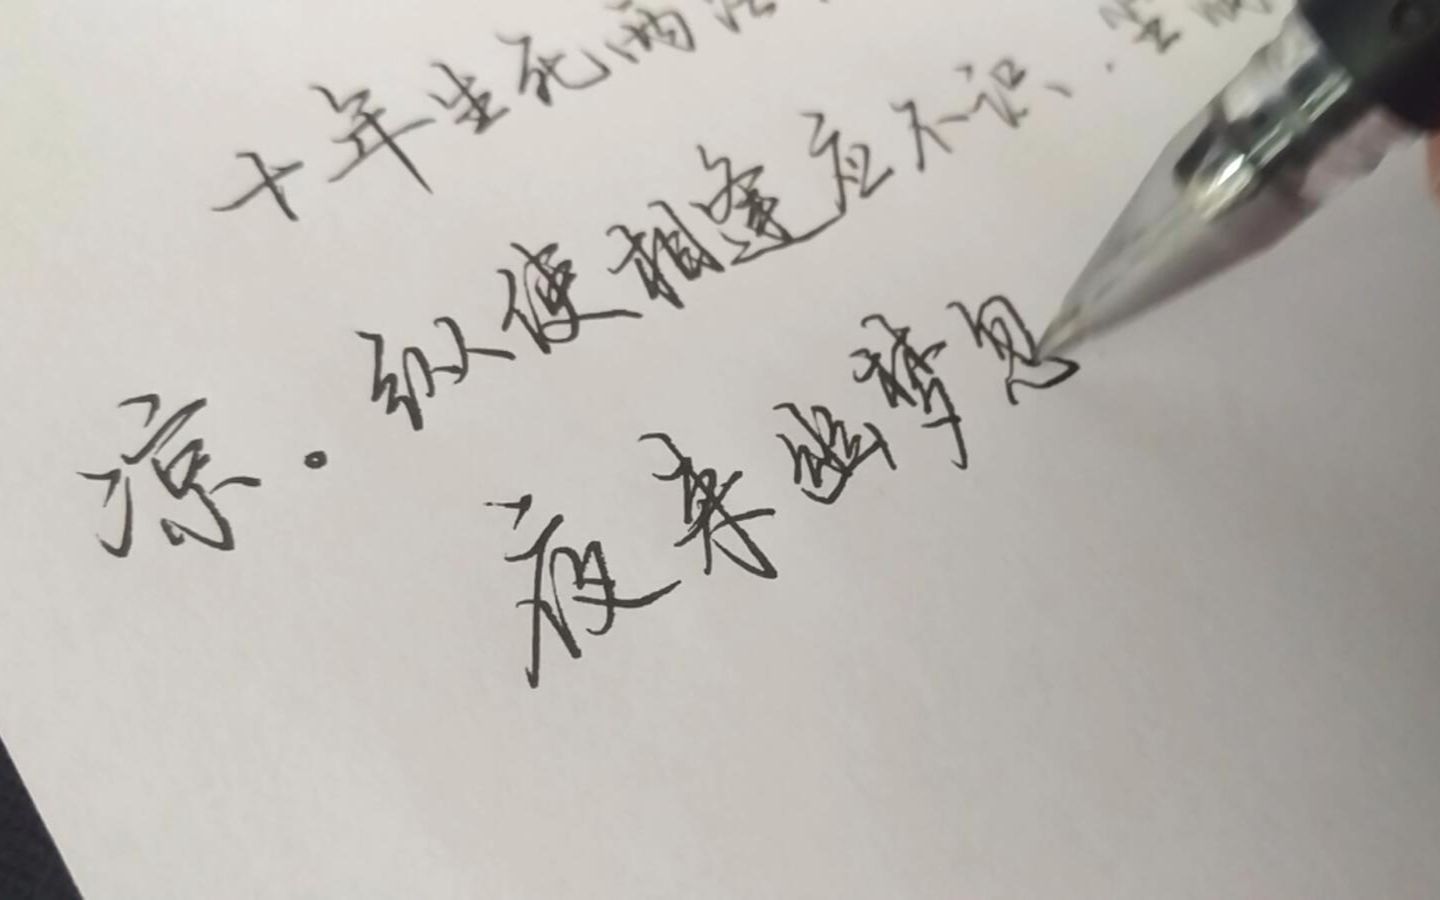 十年生死两茫
凉.纵使相逢应不识.尘满
夜来幽梦忽